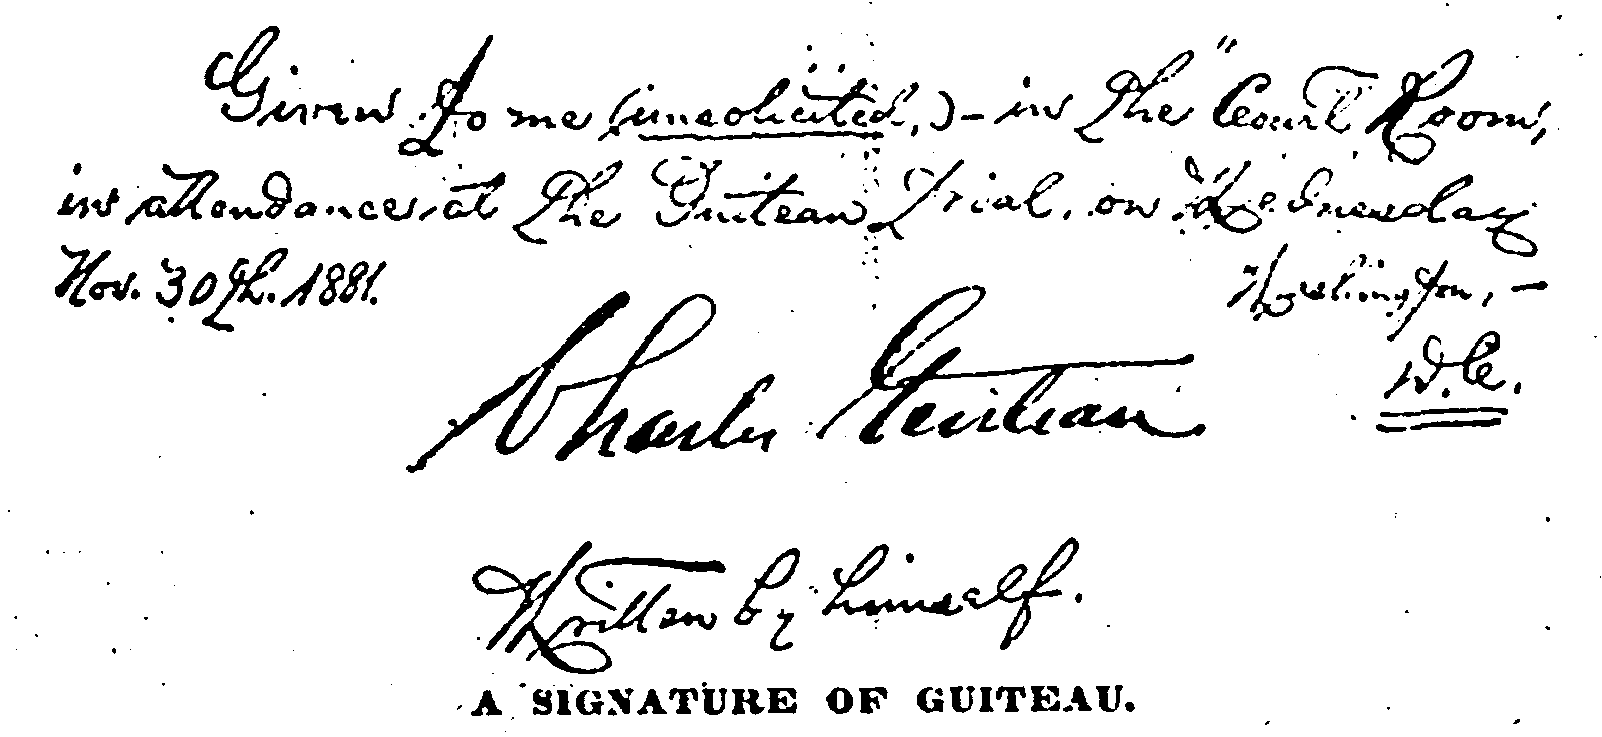 Given to me (unsolicited,) – in the "Court Room,
in attendance at the Guiteau Trial, on Wednesday
Nov. 30th. 1881.
Washington, –
D.C.
Charles Guiteau
Written by himself.
A SIGNATURE OF GUITEAU.